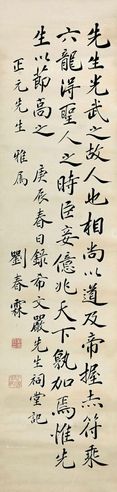 先生光武之故人也相尚以道及帝握赤符乘
六龍得聖人之時臣妾億兆天下孰加焉惟先
生以節高之
庚辰春日錄希文嚴先生祠堂記
正元先生 雅屬
劉春霖